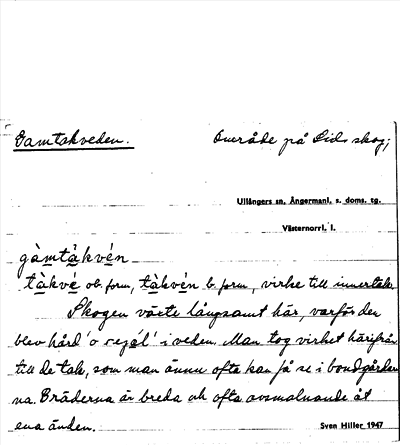 Gamtakveden. Område på Lids skog;
Ullångers sn, Ångermanl. s. doms. tg.
Västernorrl. l.
gàmtàkvén
tàkvé ob. form, tàkvén b. form, virke till innertak
Skogen växte långsamt här, varför den
blev hård 'o rejál' i veden. Man tog virket härifrån
till de tak, som man ännu ofta kan få se i bondgårdar
na. Bräderna är breda och ofta avsmalnande åt
ena änden.
Sven Hiller 1947